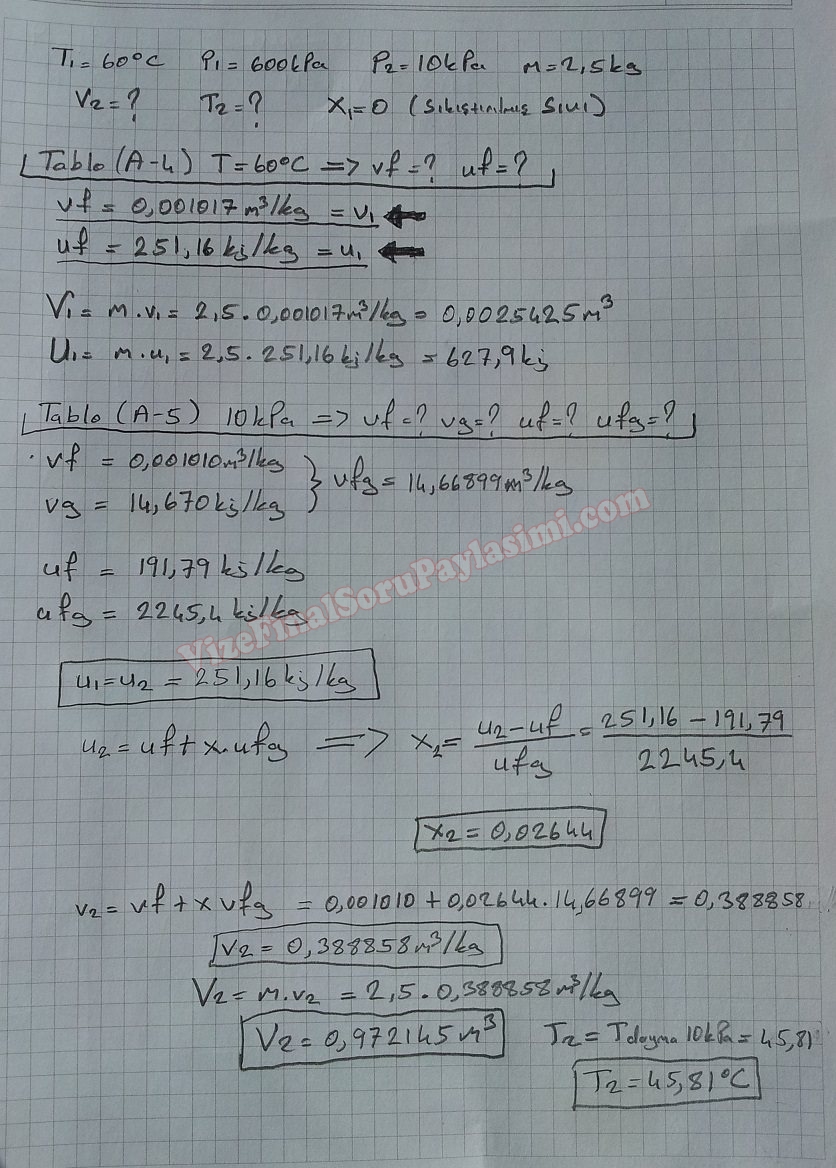 T₁= 60°C P₁= 600kPa P₂= 10kPa m= 2,5kg
V₂=? T₂=? x₁=0 (Sıkıştırılmış Sıvı)
Tablo (A-4) T=60°C => vf=? uf=?
vf = 0,001017 m³/kg = v₁ ←
uf = 251,16 kj/kg = u₁ ←
V₁= m.v₁= 2,5.0,001017m³/kg= 0,0025425m³
U₁= m.u₁= 2,5.251,16kj/kg = 627,9kj
Tablo (A-5) 10kPa => vf=? vg=? uf=? ufg=?
vf = 0,001010m³/kg } vfg= 14,66899m³/kg
vg = 14,670kj/kg
uf = 191,79 kj/kg
ufg = 2245,4 kj/kg
VizeFinalSoruPaylasimi.com
u₁=u₂ = 251,16kj/kg
u₂= uf+x.ufg => x₂= u₂-uf/ufg = 251,16-191,79/2245,4
x₂= 0,02644
v₂= vf+x vfg = 0,001010+0,02644.14,66899 = 0,388858
v₂ = 0,388858m³/kg
V₂= m.v₂ = 2,5.0,388858m³/kg
V₂= 0,972145m³ T₂= Tdoyma 10kPa= 45,81
T₂=45,81°C